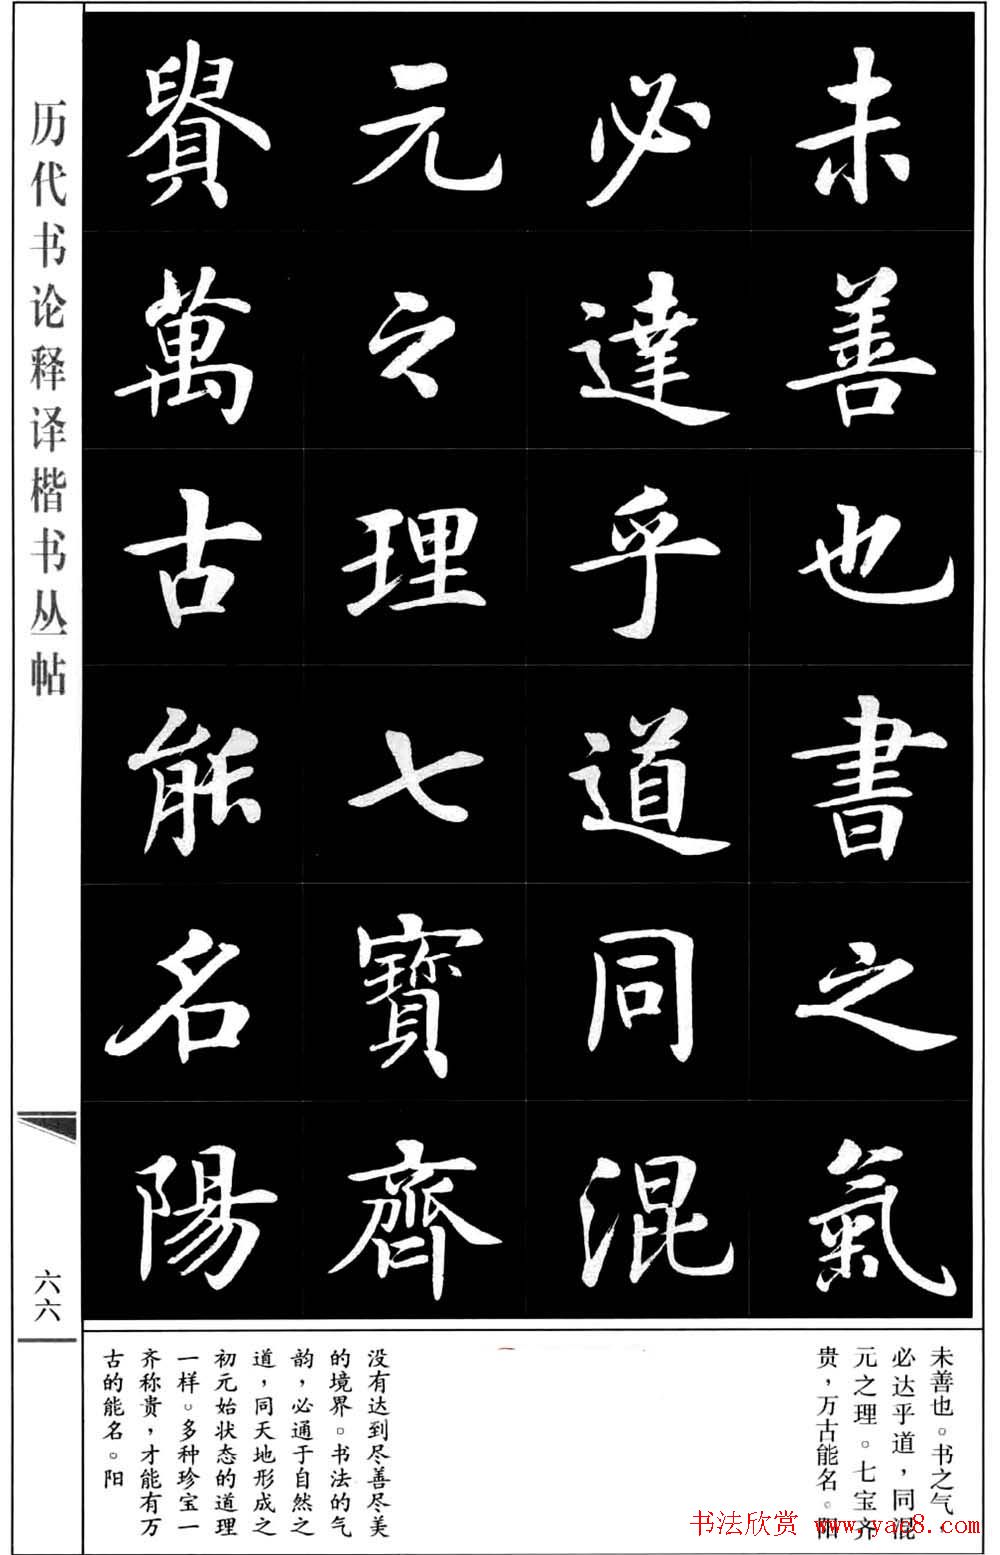 未善也書之氣
必達乎道同混
元之理七寶齊
貴萬古能名陽
历代书论释译楷书丛帖
六六
未善也。书之气，
必达乎道，同混
元之理。七宝齐
贵，万古能名。阳
没有达到尽善尽美
的境界。书法的气
韵，必通于自然之
道，同天地形成之
初元始状态的道理
一样。多种珍宝一
齐称贵，才能有万
古的能名。阳
书法欣赏 www.yac8.com